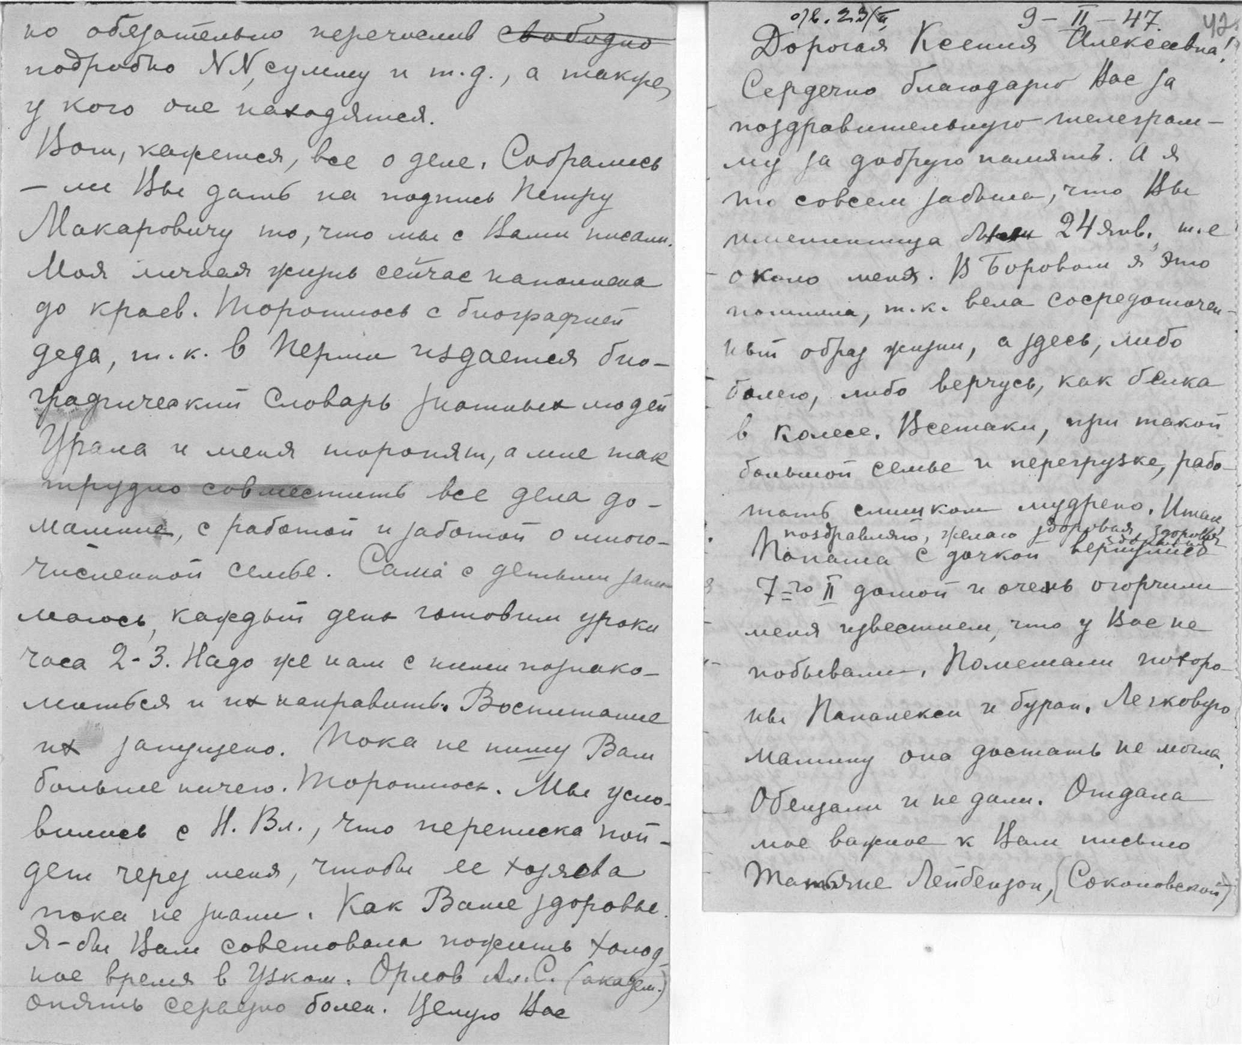 но обязательно перечислив свободно
подробно NN, сумму и т.д., а также,
у кого оне находятся.
Вот, кажется, все о деле. Собрались
– ли Вы дать на подпись Петру
Макаровичу то, что мы с Вами писали.
Моя личная жизнь сейчас наполнена
до краев. Тороплюсь с биографией
деда, т.к. в Перми издается био–
графический словарь знатных людей
Урала и меня торопят, а мне так
трудно совместить все дела до–
машние, с работой и заботой о много–
численной семье. Сама с детьми зани
маюсь, каждый день готовим уроки
часа 2-3. Надо же нам с ними познако–
миться и их направить. Воспитание
их запущено. Пока не пишу Вам
больше ничего. Тороплюсь. Мы усло–
вились с Н. Вл., что переписка пой–
дет через меня, чтобы ее хозяева
пока не знали. Как Ваше здоровье.
Я–бы Вам советовала пожить холод–
ное время в Узком. Орлов Ал.С. (академ.)
опять серьезно болен. Целую Вас
отв. 23/II
9–II–47.
42.
Дорогая Ксения Алексеевна!
Сердечно благодарю Вас за
поздравительную телеграм–
му за добрую память. А я
то совсем забыла, что Вы
именинница 24 янв., т.е
около меня. В Боровом я это
помнила, т.к. вела сосредоточен–
ный образ жизни, а здесь, либо
болею, либо верчусь, как белка
в колесе. Всетаки, при такой
большой семье и перегрузке, рабо
тать слишком мудрено. Итак
поздравляю, желаю здоровья, здоровья
Папаша с дочкой вернулись
7=го II домой и очень огорчили
меня известием, что у Вас не
побывали. Помешали похоро–
ны Папалекси и буран. Легковую
машину она достать не могла.
Обещали и не дали. Отдала
мое важное к Вам письмо
Татьяне Лейбензон, (Соколовской)